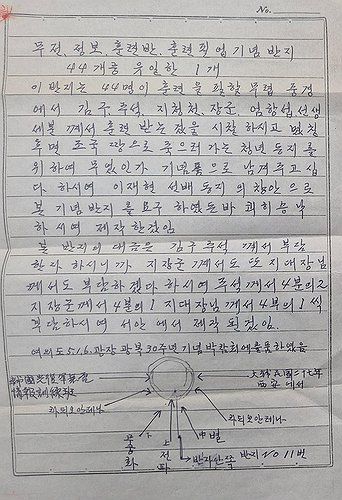 No.
무전, 정보, 훈련반, 훈련 직업 기념 반지
44개 중 유일한 1개
이 반지는 44명이 훈련을 필할 무렵 중경
에서 김구 주석 지청천, 장군, 엄항섭 선생
세분께서 훈련 받는 것을 시찰하시고 몇칠
후면 조국 땅으로 들으러가는 청년 동지를
위하여 무엇인가 기념품으로 남겨주고 싶
다 하시여 이재현 선배 동지의 창안으로
본 기념반지를 요구하였든바 쾌히 승낙
하시여 제작한것임
본 반지의 대금은 김구 주석께서 부담
한다 하시니까 지장군께서도 또 지대장님
께서도 부담하겠다 하시여 주석께서 4분의 2
지장군께서 4분의 1 지대장님께서 4분의 1씩
부담하시여 서안에서 제작되였음.
여의도 5.16. 광장 광복 30주년 기념 박람회에 출품하였음
韓國光復軍無電
情報訓練班
大韓民國二十七年
西安에서
라듸오안테나
라듸오안테나
무궁화
상
전파
中벌
반지안쪽 반지 No 11번